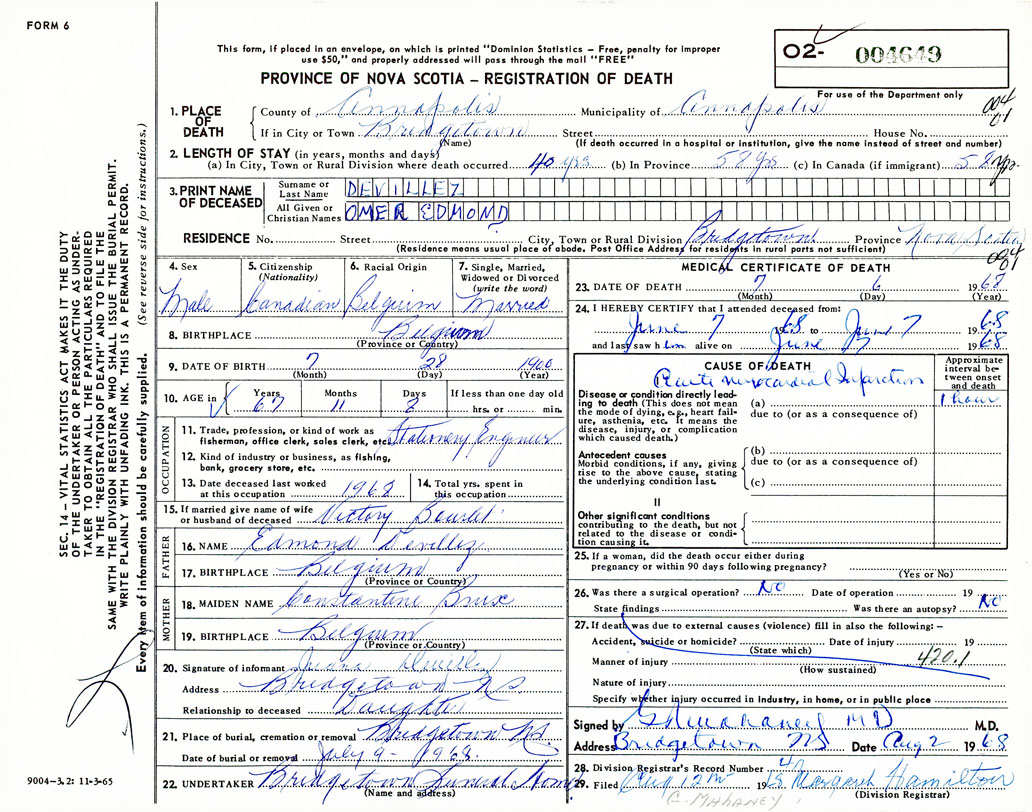 FORM 6
This form, if placed in an envelope, on which is printed "Dominion Statistics – Free, penalty for improper
use $50," and properly addressed will pass through the mail "FREE"
PROVINCE OF NOVA SCOTIA – REGISTRATION OF DEATH
O2- 004649
For use of the Department only
004
01
1. PLACE OF DEATH
County of Annapolis Municipality of Annapolis
If in City or Town Bridgetown Street House No.
(Name) (If death occurred in a hospital or institution, give the name instead of street and number)
2. LENGTH OF STAY (in years, months and days)
(a) In City, Town or Rural Division where death occurred 40 yrs (b) In Province 58 yrs (c) In Canada (if immigrant) 58 yrs.
3. PRINT NAME OF DECEASED
Surname or Last Name DEVILLEZ
All Given or Christian Names OMER EDMOND
RESIDENCE No. Street City, Town or Rural Division Bridgetown Province Nova Scotia
(Residence means usual place of abode. Post Office Address for residents in rural parts not sufficient)
004
01
4. Sex
Male
5. Citizenship
(Nationality)
Canadian
6. Racial Origin
Belgium
7. Single, Married,
Widowed or Divorced
(write the word)
Married
8. BIRTHPLACE Belgium
(Province or Country)
9. DATE OF BIRTH 7 28 1900
(Month) (Day) (Year)
10. AGE in
Years Months Days If less than one day old
67 11 8 hrs. or min.
OCCUPATION
11. Trade, profession, or kind of work as
fisherman, office clerk, sales clerk, etc. Stationery Engineer
12. Kind of industry or business, as fishing,
bank, grocery store, etc.
13. Date deceased last worked
at this occupation 1968
14. Total yrs. spent in
this occupation
15. If married give name of wife
or husband of deceased Victory
FATHER
16. NAME Edmond Devillez
17. BIRTHPLACE Belgium
(Province or Country)
MOTHER
18. MAIDEN NAME Constantine
19. BIRTHPLACE Belgium
(Province or Country)
20. Signature of informant
Address Bridgetown NS
Relationship to deceased Daughter
21. Place of burial, cremation or removal Bridgetown NS
Date of burial or removal July 9 - 1968
22. UNDERTAKER Bridgetown Funeral Home
(Name and address)
MEDICAL CERTIFICATE OF DEATH
23. DATE OF DEATH 7 6 1968
(Month) (Day) (Year)
24. I HEREBY CERTIFY that I attended deceased from:
June 7 1968 to June 7 1968
and last saw him alive on June 7 1968
CAUSE OF DEATH
Approximate
interval be-
tween onset
and death
Acute Myocardial Infarction
1 hour
Disease or condition directly lead-
ing to death (This does not mean
the mode of dying, e.g., heart fail-
ure, asthenia, etc. It means the
disease, injury, or complication
which caused death.)
(a)
due to (or as a consequence of)
Antecedent causes
Morbid conditions, if any, giving
rise to the above cause, stating
the underlying condition last.
(b)
due to (or as a consequence of)
(c)
II
Other significant conditions
contributing to the death, but not
related to the disease or condi-
tion causing it.
25. If a woman, did the death occur either during
pregnancy or within 90 days following pregnancy?
(Yes or No)
26. Was there a surgical operation? NO Date of operation 19
State findings Was there an autopsy? NO
27. If death was due to external causes (violence) fill in also the following: –
Accident, suicide or homicide? Date of injury 19
(State which)
420.1
Manner of injury
(How sustained)
Nature of injury
Specify whether injury occurred in Industry, in home, or in public place
Signed by G Mahaney MD M.D.
Address Bridgetown NS Date Aug 2 1968
28. Division Registrar's Record Number
29. Filed Aug 12th 19 Margaret Hamilton
(Division Registrar)
G. MAHANEY
SEC. 14 – VITAL STATISTICS ACT MAKES IT THE DUTY
OF THE UNDERTAKER OR PERSON ACTING AS UNDER-
TAKER TO OBTAIN ALL THE PARTICULARS REQUIRED
IN THE "REGISTRATION OF DEATH" AND TO FILE THE
SAME WITH THE DIVISION REGISTRAR WHO SHALL ISSUE THE BURIAL PERMIT.
WRITE PLAINLY WITH UNFADING INK. THIS IS A PERMANENT RECORD.
Every item of information should be carefully supplied. (See reverse side for instructions.)
9004-3.2: 11-3-65